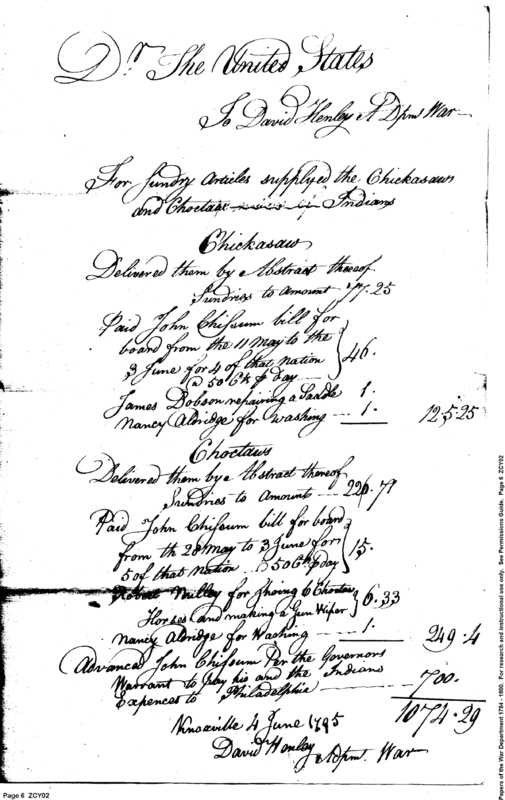 Dr The United States
To David Henley A Dpmt War
For Sundry Articles supplyed the Chickasaw
and Choctaw Indians
Chickasaw
Delivered them by Abstract thereof
Sundries to Amount 77.25
Paid John Chissum bill for
board from the 11 May to the
3 June for 4 of that Nation
@ 50 Cts p day } 46.
James Dobson repairing a Saddle 1.
Nancy Aldridge for washing 1. 125.25
Choctaws
Delivered them by Abstract thereof
Sundries to Amount 226.71
Paid John Chissum bill for board
from th 28 May to 3 June for
5 of that Nation @ 50 Cts p day } 15.
Robert for Shoing 6 Choctaw
Horses and making a Gun Wiper } 6.33
Nancy Aldridge for Washing 1. 249.4
Advanced John Chissum Per the Governors
Warrant to pay his and the Indians
Expences to Philadelphia 700.
1074.29
Knoxville 4 June 1795
David Henley
A Dpmt. War
Page 6 ZCY02
Papers of the War Department 1784 - 1800. For research and instructional use only. See Permissions Guide. Page 6 ZCY02